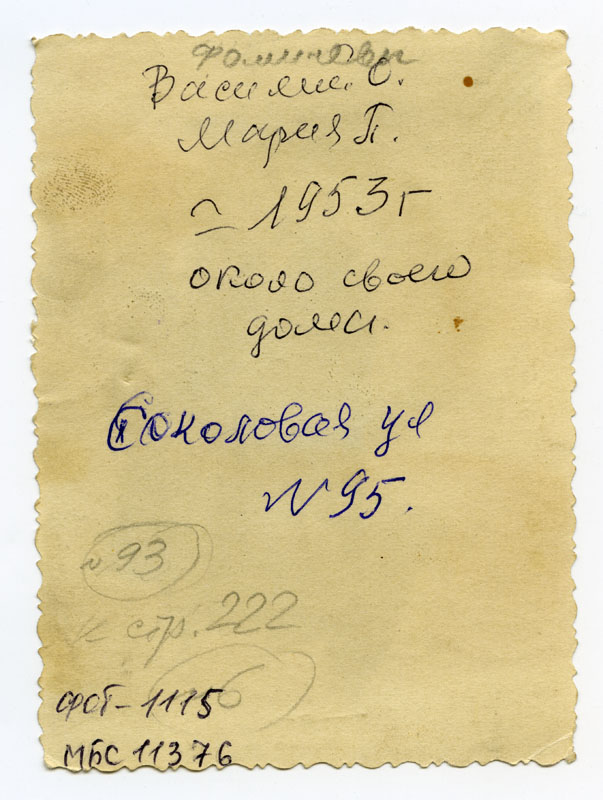 Фоминовы
Василий С.
Мария П.
≃ 1953 г
около своего
дома.
Соколовая ул
N 95.
N 93
к стр. 222
6
ФОТ-1115
МБС 11376